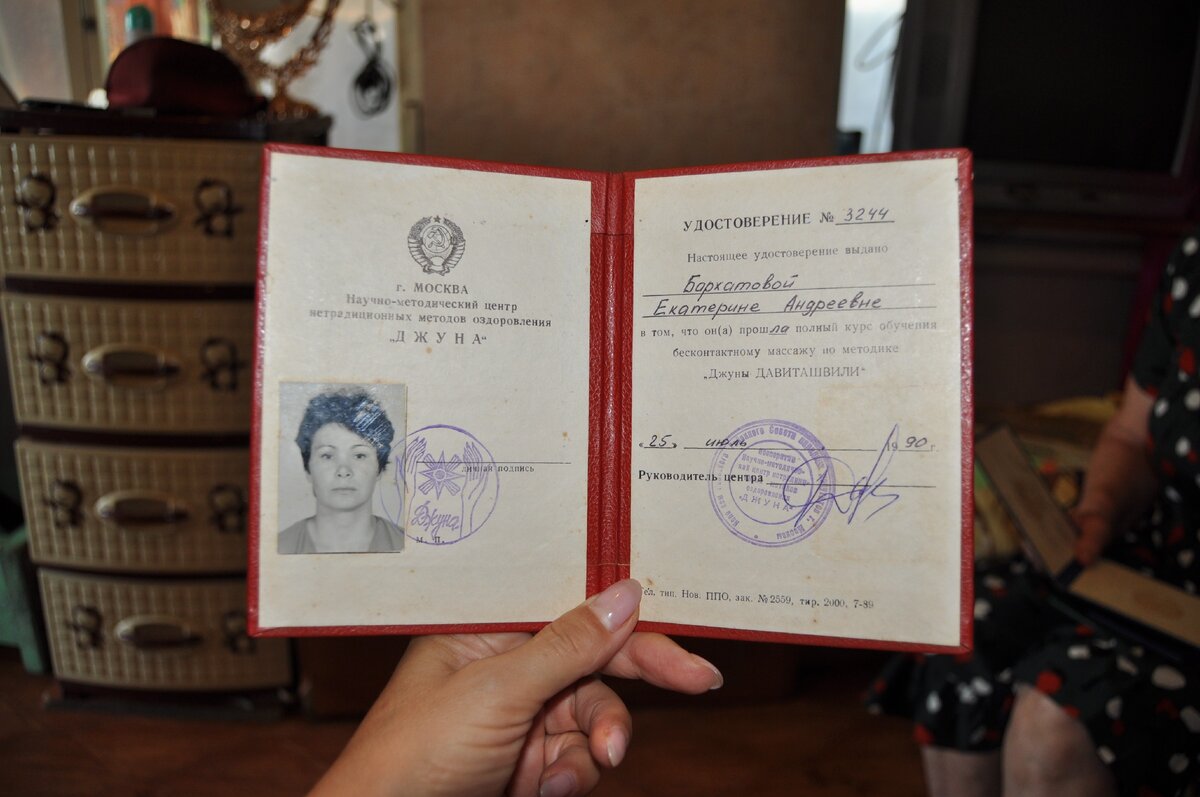 г. МОСКВА
Научно-методический центр
нетрадиционных методов оздоровления
„ДЖУНА“
личная подпись
Джуна
м. п.
УДОСТОВЕРЕНИЕ № 3244
Настоящее удостоверение выдано
Бархатовой
Екатерине Андреевне
в том, что он(а) прошла полный курс обучения
бесконтактному массажу по методике
„Джуны ДАВИТАШВИЛИ“
„25„ июль 1990 г.
Руководитель центра
тип. Нов. ППО, зак. №2559, тир. 2000, 7-89